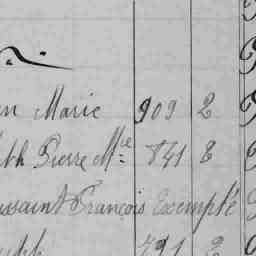 n Marie 909 2
ph Pierre Mie 841 2
ussaint François Exempté
791 2